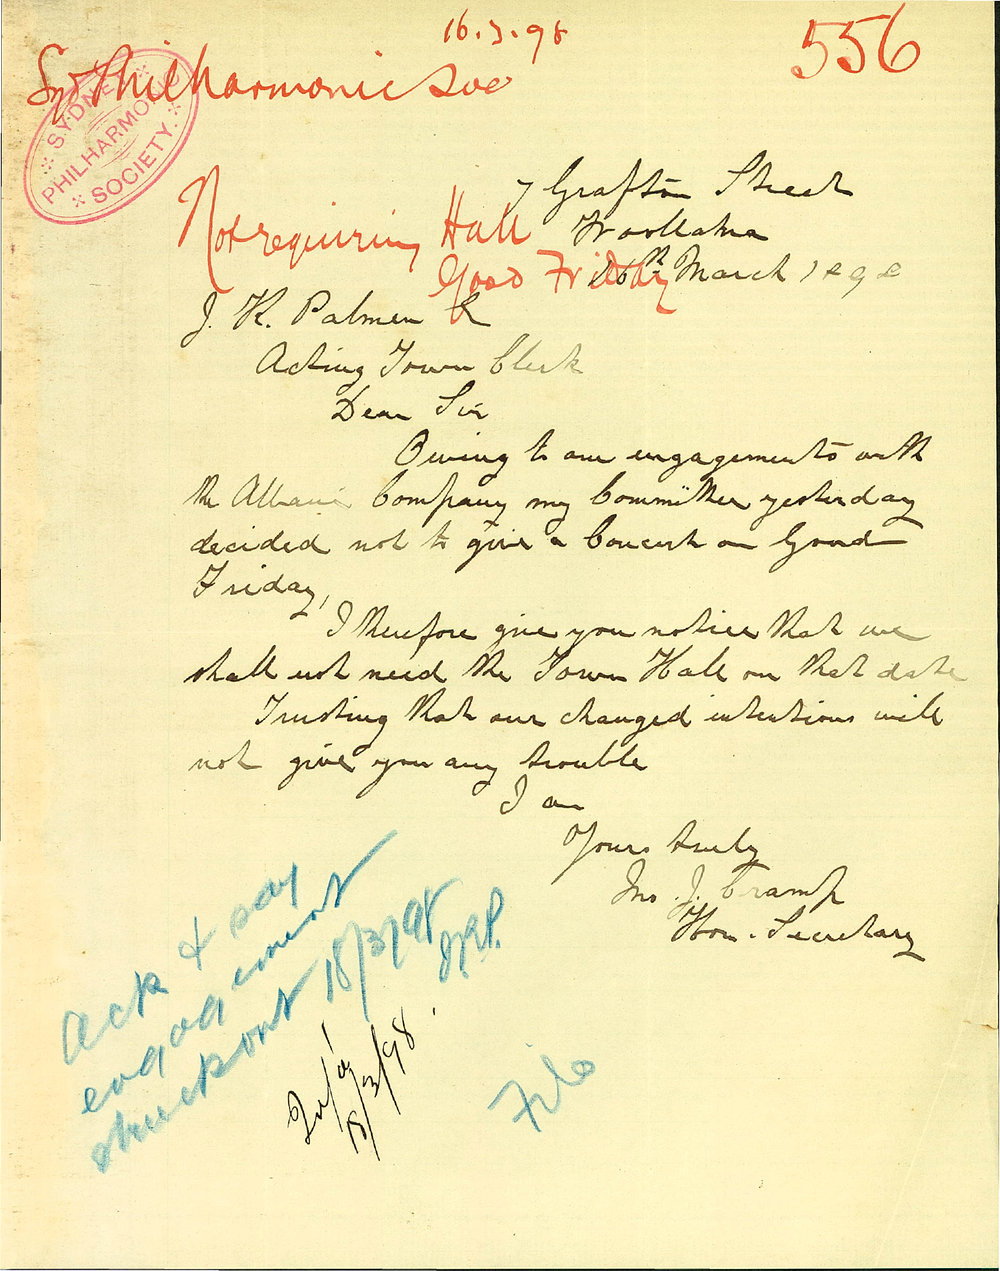 16.3.98
556
Syd Philharmonic Soc
SYDNEY
PHILHARMONIC
SOCIETY.
Not requiring Hall
Good Friday
7 Grafton Street
Woollahra
16th March 1898
J. K. Palmer
Acting Town Clerk
Dear Sir
Owing to our engagements with
the Albani Company my Committee yesterday
decided not to give a Concert on Good
Friday,
I therefore give you notice that we
shall not need the Town Hall on that date
Trusting that our changed intentions will
not give you any trouble
I am
Yours truly
Jno. J. Cramp
Hon. Secretary
Ack & say
engagement
struck out 18/3/98
18/3/98
File